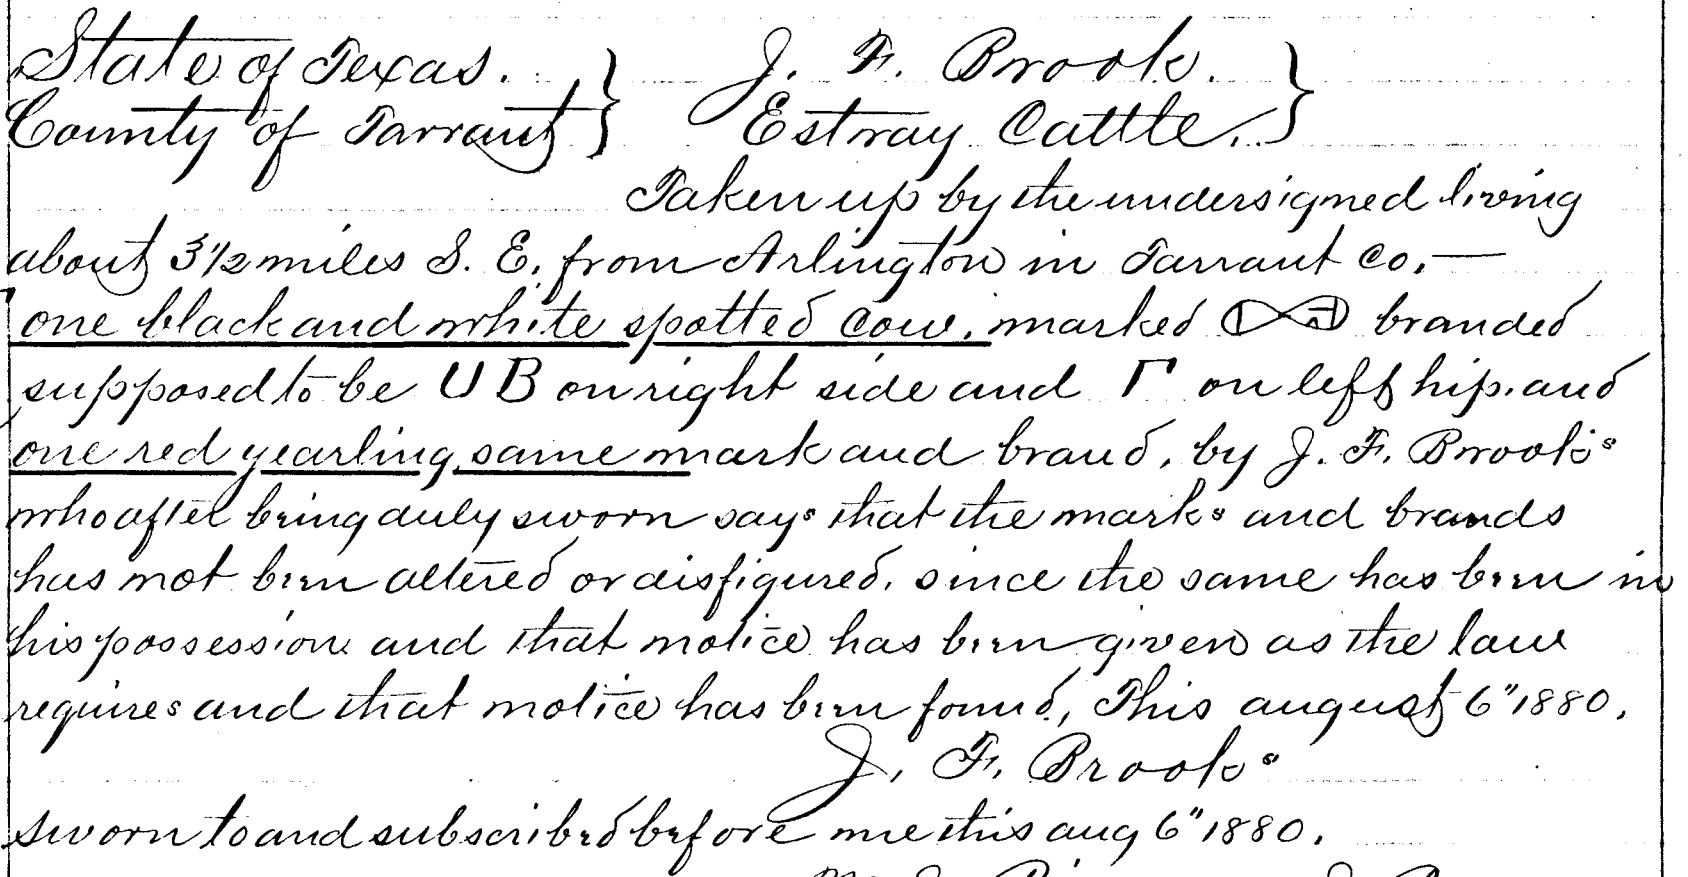 State of Texas. } J. F. Brook. }
County of Tarrant } Estray Cattle. }
Taken up by the undersigned living
about 3 1/2 miles S. E. from Arlington in Tarrant Co. —
one black and white spotted cow. marked branded
supposed to be U B on right side and Γ on left hip. and
one red yearling same mark and brand, by J. F. Brooks
who after being duly sworn says that the marks and brands
has not been altered or disfigured. since the same has been in
his possession and that notice has been given as the law
requires and that notice has been found, This august 6" 1880.
J. F. Brooks
sworn to and subscribed before me this aug 6" 1880.